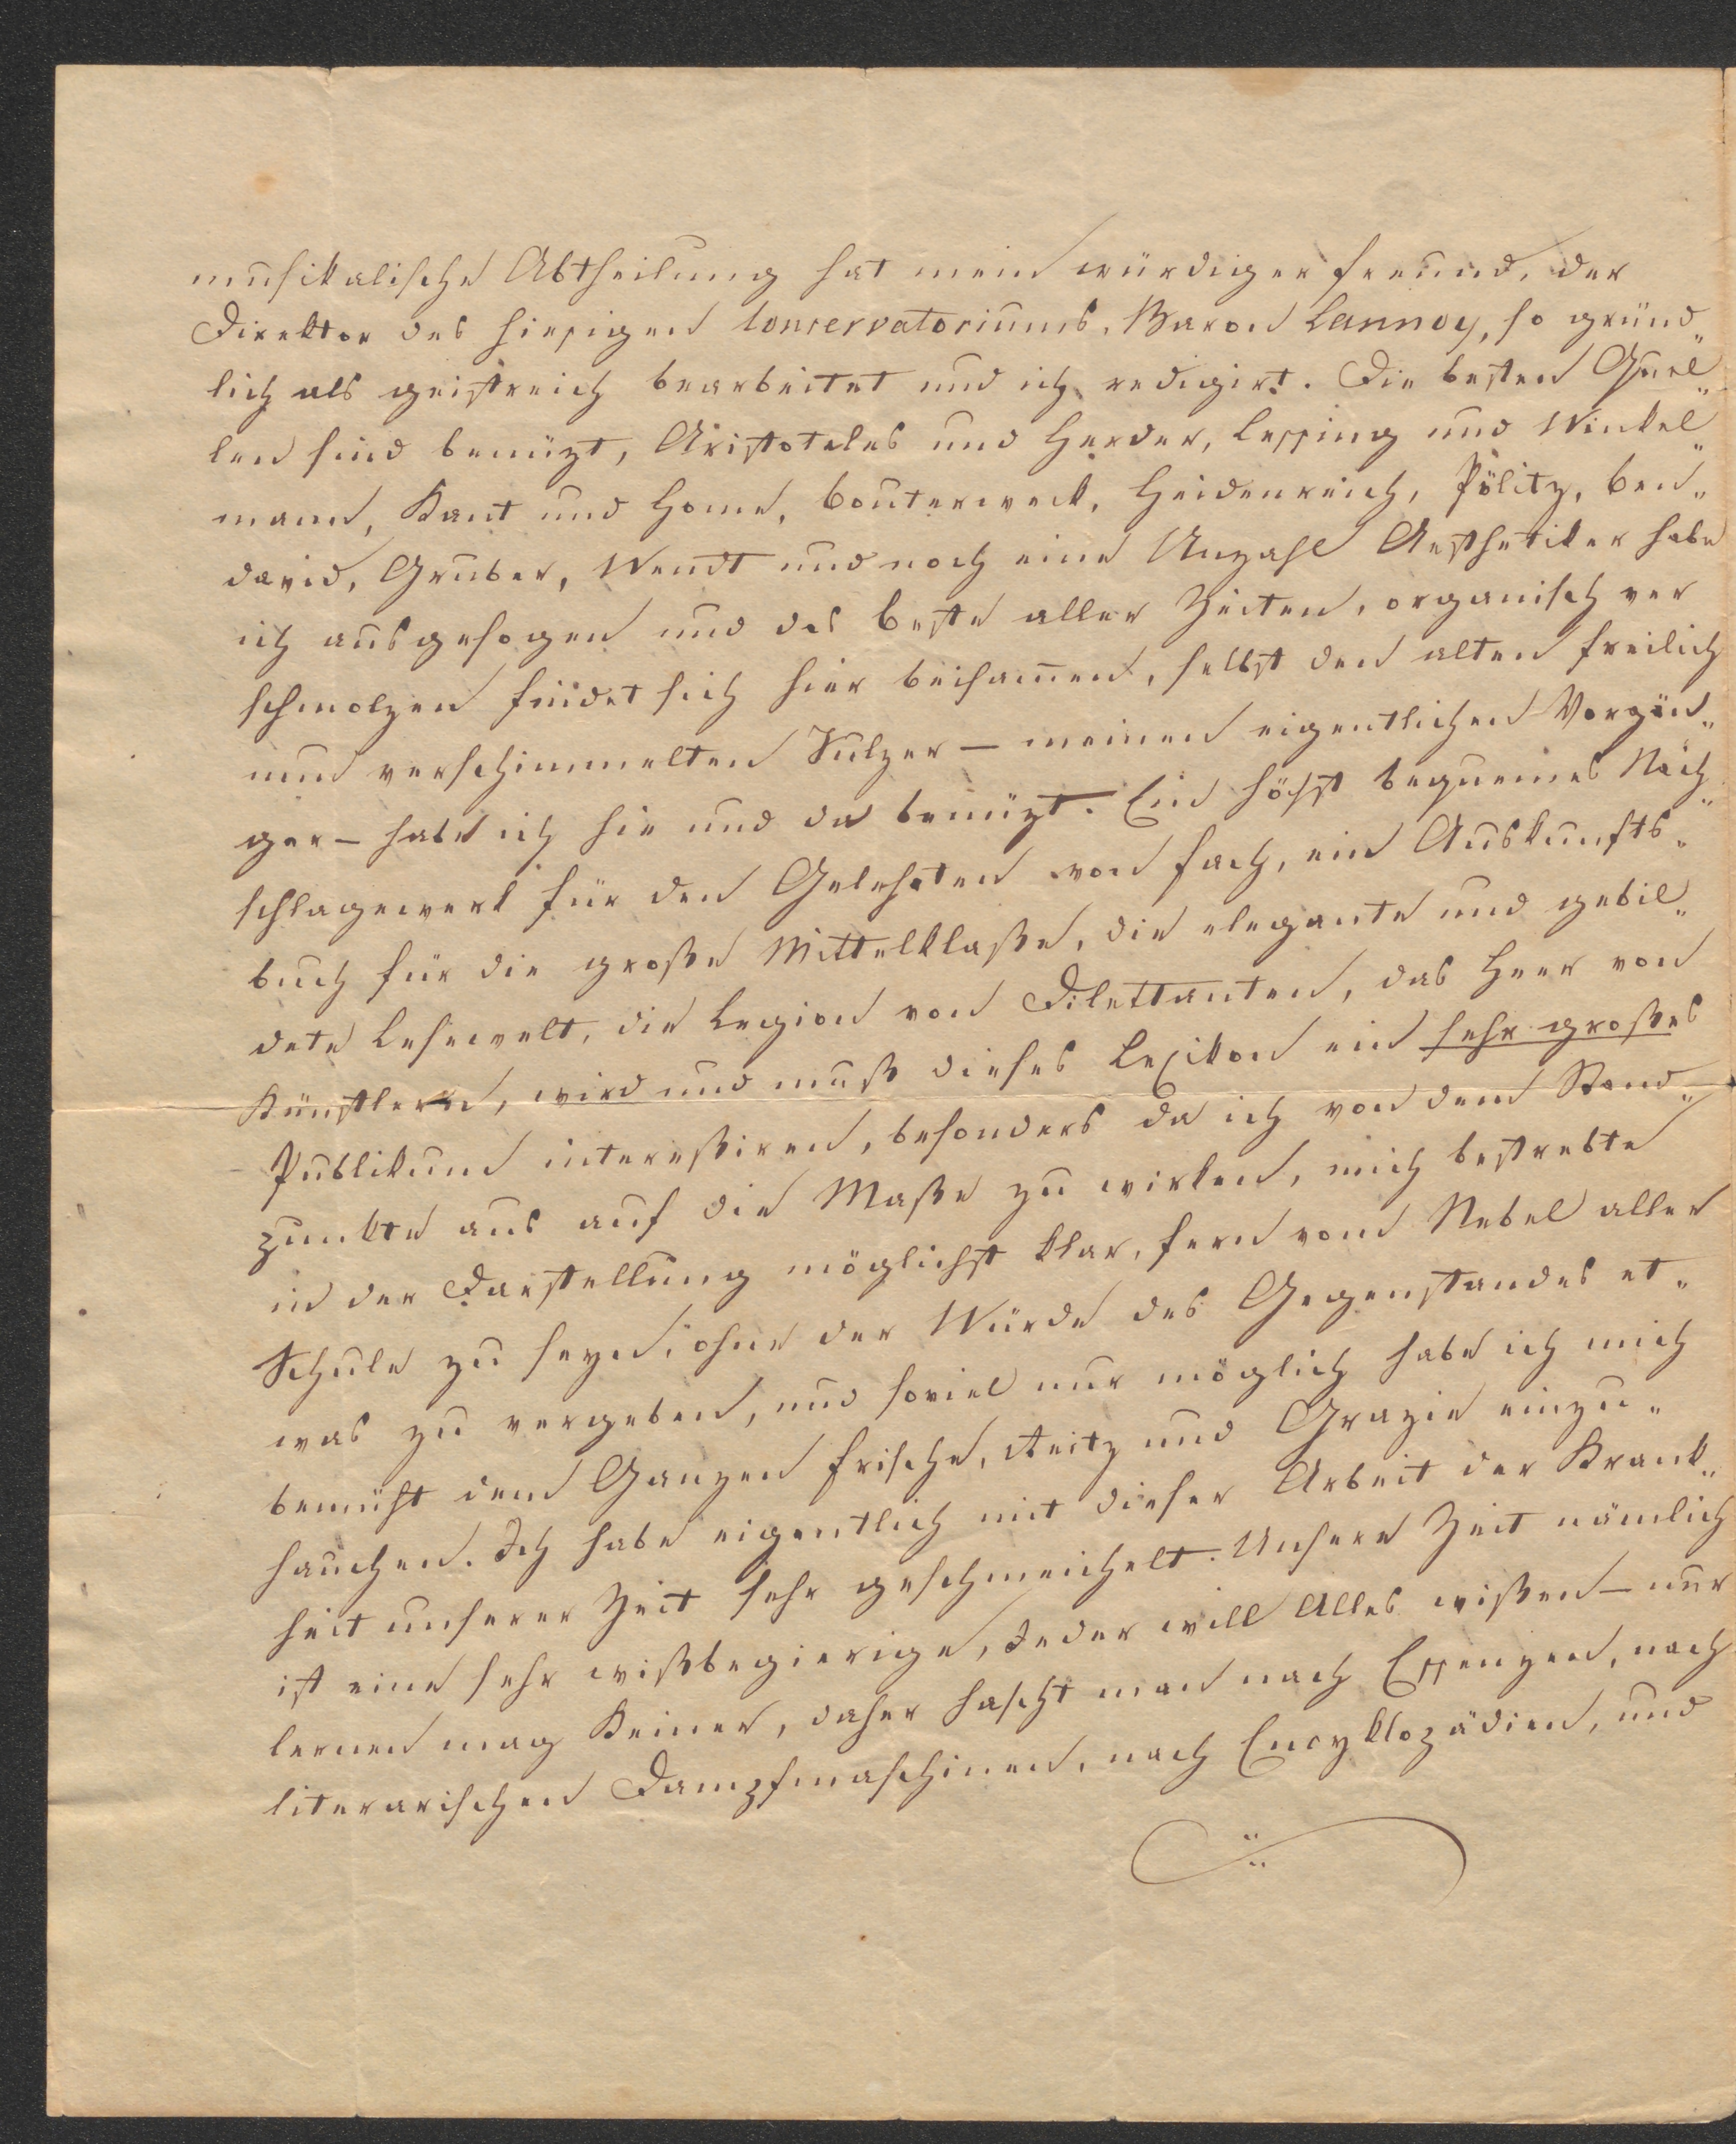 musikalische Abtheilung hat mein würdiger Freund, der
Direktor des hiesigen Conservatoriums, Baron Lannoy, so gründ„
lich als geistreich bearbeitet und ich redigirt. Die besten Quel„
len sind benüzt, Aristoteles und Herder, Lessing und Winkel„
mann, Kant und Home, Bouterweck, Heidenreich, Pölitz, Ben„
david, Gruber, Wendt und noch eine Unzahl Aesthetiker habe
ich ausgesogen und das Beste aller Zeiten, organisch ver
schmolzen findet sich hier beisam̅en, selbst den alten freilich
nun verschimmelten Sulzer — meinen eigentlichen Vorgän„
ger — habe ich hie und da benüzt. Ein höchst bequemes Nach„
schlagewerk für den Gelehrten von Fach, ein Auskunfts„
buch für die große Mittelklaße, die elegante und gebil„
dete Lesewelt, die Legion von Dilettanten, das Heer von
Künstlern, wird und muß dieses Lexikon ein sehr großes
Publikum intereßiren, besonders da ich von dem Stand„
punkte aus auf die Maße zu wirken, mich bestrebte
in der Darstellung möglichst klar, fern vom Nebel aller
Schule zu seyn, ohne der Würde des Gegenstandes et„
was zu vergeben, und soviel nur möglich habe ich mich
bemüht dem Ganzen Frische, Reitz und Grazie einzu„
hauchen. Ich habe eigentlich mit dieser Arbeit der Krank„
heit unserer Zeit sehr geschmeichelt. Unsere Zeit nämlich
ist eine sehr wißbegierige, Jeder will Alles wißen — nur
lernen mag Keiner, daher hascht man nach Essenzen, nach
literarischen Dampfmaschinen, nach Encyklopädien, und